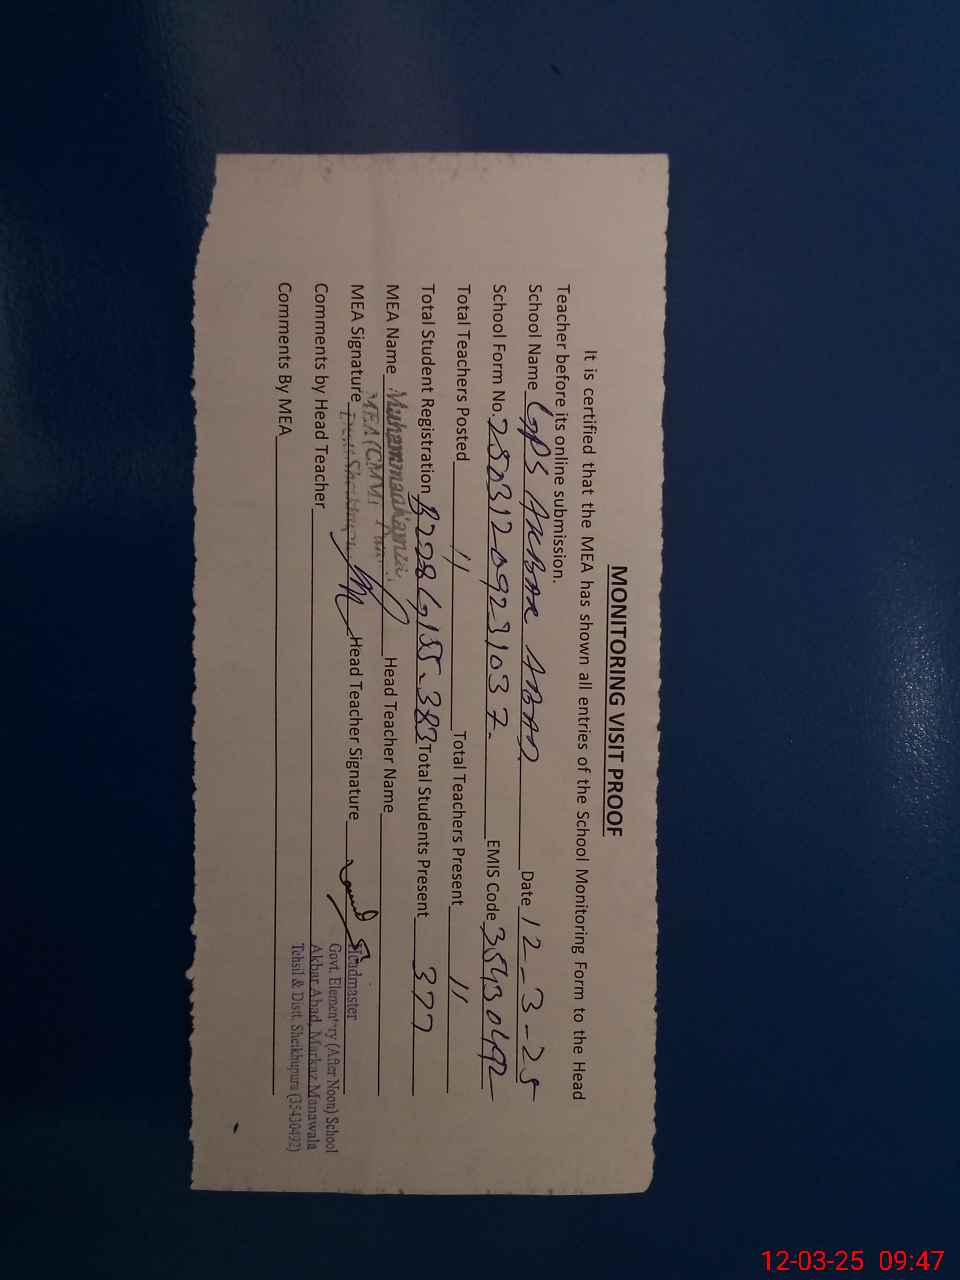 MONITORING VISIT PROOF
It is certified that the MEA has shown all entries of the School Monitoring Form to the Head
Teacher before its online submission.
School Name GPS AKBAR ABAD Date 12-3-25
School Form No. 25031209231037. EMIS Code 35430492
Total Teachers Posted 11 Total Teachers Present 11
Total Student Registration B228 G155-383 Total Students Present 377
MEA Name Muhammad Head Teacher Name
MEA (CMM)
MEA Signature Head Teacher Signature
Headmaster
Govt. Elementry (After Noon) School
Comments by Head Teacher Akbar Abad, Markaz Manawala
Tehsil & Distt. Sheikhupura (35430492)
Comments By MEA
12-03-25 09:47